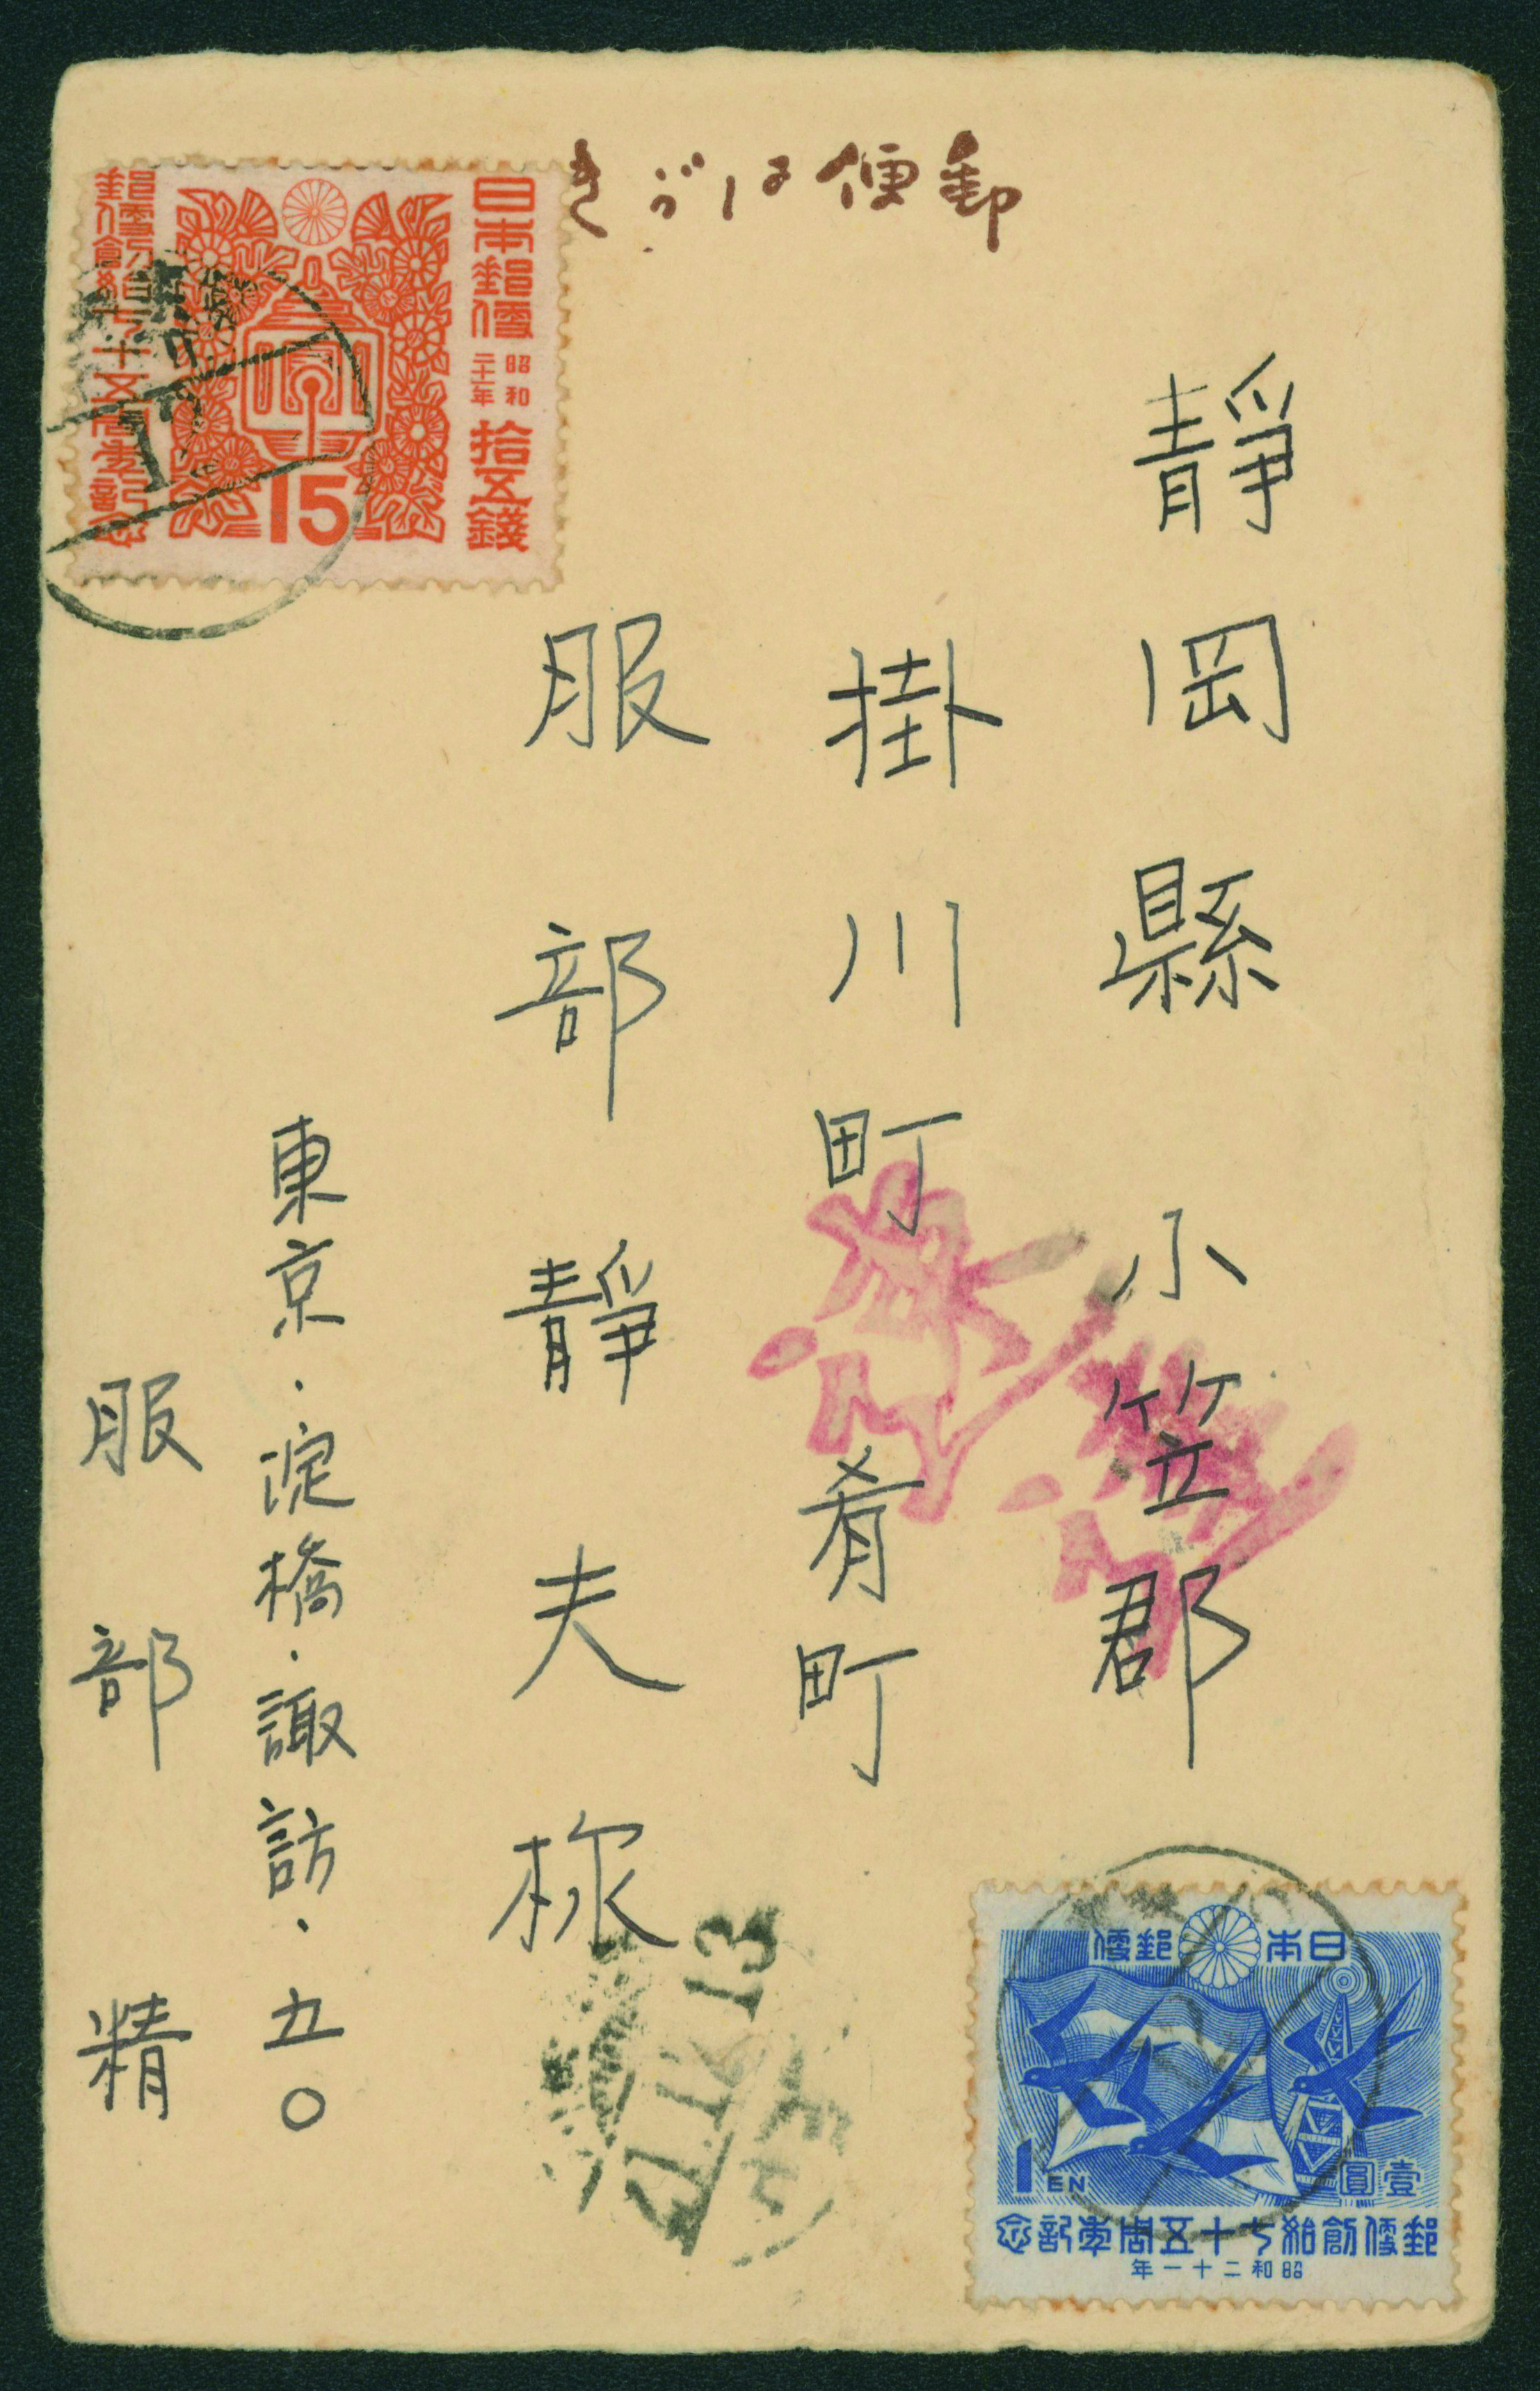 郵便はがき
靜岡縣 小笠郡
掛川町 肴町
服部靜夫様
東京・淀橋・諏訪・五〇
服部 精
日本郵便
昭和二十一年
拾五錢
郵便創始七十五周年記念
15
日本郵便
1 EN
壹圓
郵便創始七十五周年記念
昭和二十一年